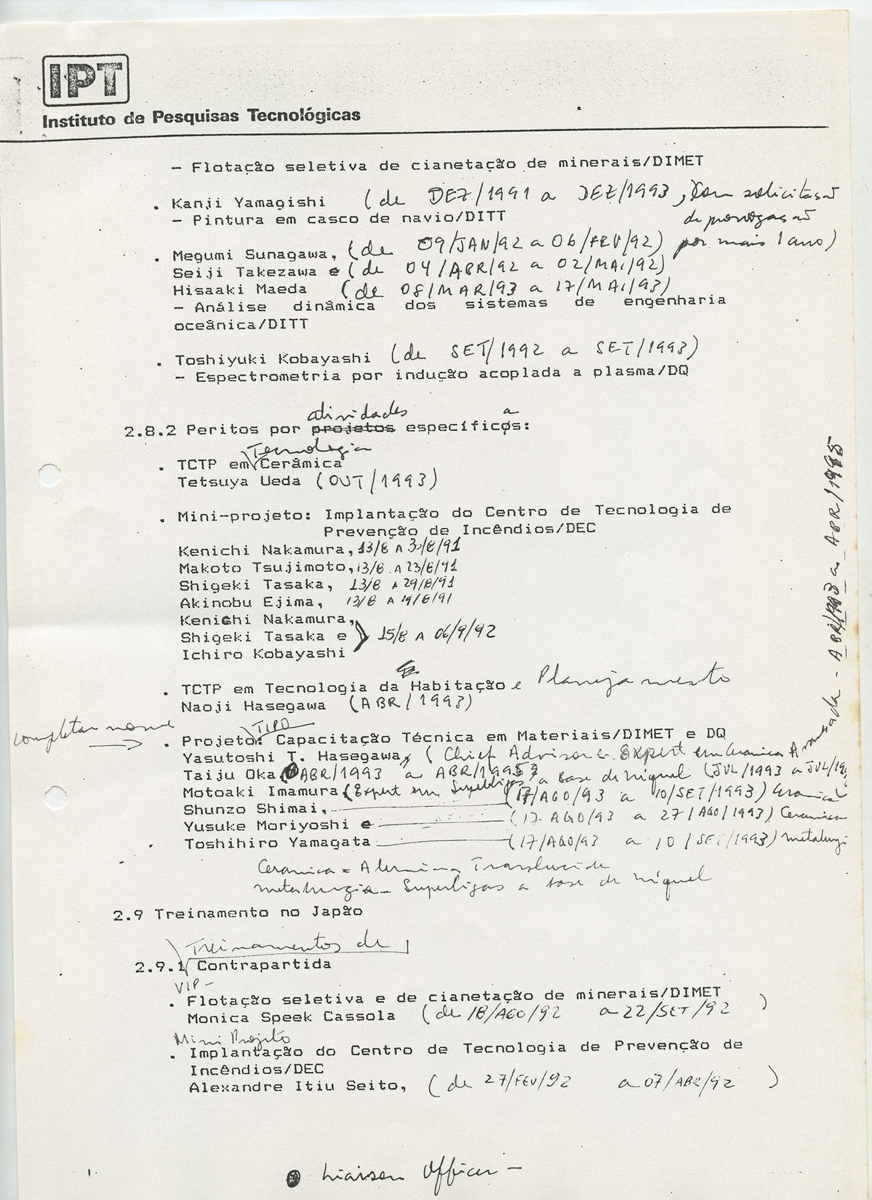 IPT
Instituto de Pesquisas Tecnológicas
- Flotação seletiva de cianetação de minerais/DIMET
. Kanji Yamagishi (de DEZ/1991 a DEZ/1993, com solicitação
- Pintura em casco de navio/DITT de prorrogação
por mais 1 ano)
. Megumi Sunagawa, (de 09/JAN/92 a 06/FEV/92)
Seiji Takezawa e (de 04/ABR/92 a 02/MAI/92)
Hisaaki Maeda (de 08/MAR/93 a 17/MAI/93)
- Análise dinâmica dos sistemas de engenharia
oceânica/DITT
. Toshiyuki Kobayashi (de SET/1992 a SET/1993)
- Espectrometria por indução acoplada a plasma/DQ
atividades a
2.8.2 Peritos por projetos específicos:
Tecnologia
. TCTP em Cerâmica
Tetsuya Ueda (OUT/1993)
. Mini-projeto: Implantação do Centro de Tecnologia de
Prevenção de Incêndios/DEC
Kenichi Nakamura, 13/8 A 30/8/91
Makoto Tsujimoto, 13/8 A 23/8/91
Shigeki Tasaka, 13/8 A 29/8/91
Akinobu Ejima, 13/8 A 19/8/91
Kenichi Nakamura,
Shigeki Tasaka e 15/8 A 06/9/92
Ichiro Kobayashi
. TCTP em Tecnologia da Habitação e Planejamento
Naoji Hasegawa (ABR/1993)
completar nome
TIPO
. Projeto: Capacitação Técnica em Materiais/DIMET e DQ
Yasutoshi T. Hasegawa, (Chief Advisor e Expert em Cerâmica Avançada - ABR/1993 a ABR/1995
Taiju Oka ABR/1993 a ABR/1995
Motoaki Imamura (Expert em Superligas a base de níquel (JUL/1993 a JUL/19
Shunzo Shimai, (17/AGO/93 a 10/SET/1993) Cerâmica
Yusuke Moriyoshi e (17 AGO/93 a 27/AGO/1993) Cerâmica
Toshihiro Yamagata (17/AGO/93 a 10/SET/1993) metalurgi
Cerâmica = Alumina Translucide
metalurgia - Superligas a base de níquel
2.9 Treinamento no Japão
Treinamentos de
2.9.1 Contrapartida
VIP-
. Flotação seletiva e de cianetação de minerais/DIMET
Monica Speek Cassola (de 18/AGO/92 a 22/SET/92)
Mini Projeto
. Implantação do Centro de Tecnologia de Prevenção de
Incêndios/DEC
Alexandre Itiu Seito, (de 27/FEV/92 a 07/ABR/92)
Liaison Officer -